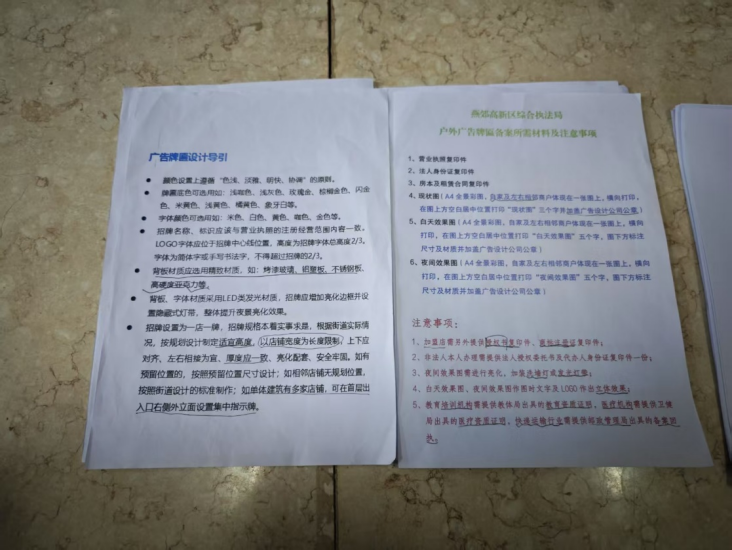 广告牌匾设计导引
● 颜色设置上遵循“色浅、淡雅、明快、协调”的原则。
● 牌匾底色可选用如：浅咖色、浅灰色、玫瑰金、棕榈金色、闪金
色、米黄色、浅黄色、橘黄色、象牙白等。
● 字体颜色可选用如：米色、白色、黄色、咖色、金色等。
● 招牌名称、标识应该与营业执照的注册经营范围内容一致。
LOGO字体应位于招牌中心线位置，高度为招牌字体总高度2/3。
字体为简体字或手写书法字，不得超过招牌的2/3。
● 背板材质应选用精致材质，如：烤漆玻璃、铝塑板、不锈钢板、
高硬度亚克力等。
● 背板、字体材质采用LED类发光材质，招牌应增加亮化边框并设
置隐藏式灯带，整体提升夜景亮化效果。
● 招牌设置为一店一牌，招牌规格本着实事求是，根据街道实际情
况，按规划设计制定适宜高度，以店铺宽度为长度限制，上下应
对齐、左右相接为宜、厚度应一致、亮化配套、安全牢固。如有
预留位置的，按照预留位置尺寸设计；如相邻店铺无规划位置，
按照街道设计的标准制作；如单体建筑有多家店铺，可在首层出
入口右侧外立面设置集中指示牌。
燕郊高新区综合执法局
户外广告牌匾备案所需材料及注意事项
1、营业执照复印件
2、法人身份证复印件
3、房本及租赁合同复印件
4、现状图（A4全景彩图，自家及左右相邻商户体现在一张图上，横向打印，
在图上方空白居中位置打印“现状图”三个字并加盖广告设计公司公章）
5、白天效果图（A4全景彩图、自家及左右相邻商户体现在一张图上，横向
打印，在图上方空白居中位置打印“白天效果图”五个字，图下方标注
尺寸及材质并加盖广告设计公司公章）
6、夜间效果图（A4全景彩图、自家及左右相邻商户体现在一张图上，横向
打印，在图上方空白居中位置打印“夜间效果图”五个字，图下方标注
尺寸及材质并加盖广告设计公司公章）
注意事项：
1、加盟店需另外提供授权书复印件、商标注册证复印件；
2、非法人本人办理需提供法人授权委托书及代办人身份证复印件一份；
3、夜间效果图需进行亮化，加装洗墙灯或发光灯带；
4、白天效果图、夜间效果图作图时文字及LOGO作出立体效果；
5、教育培训机构需提供教体局出具的教育资质证明，医疗机构需提供卫健
局出具的医疗资质证明，快递运输行业需提供邮政管理局出具的备案回
执。